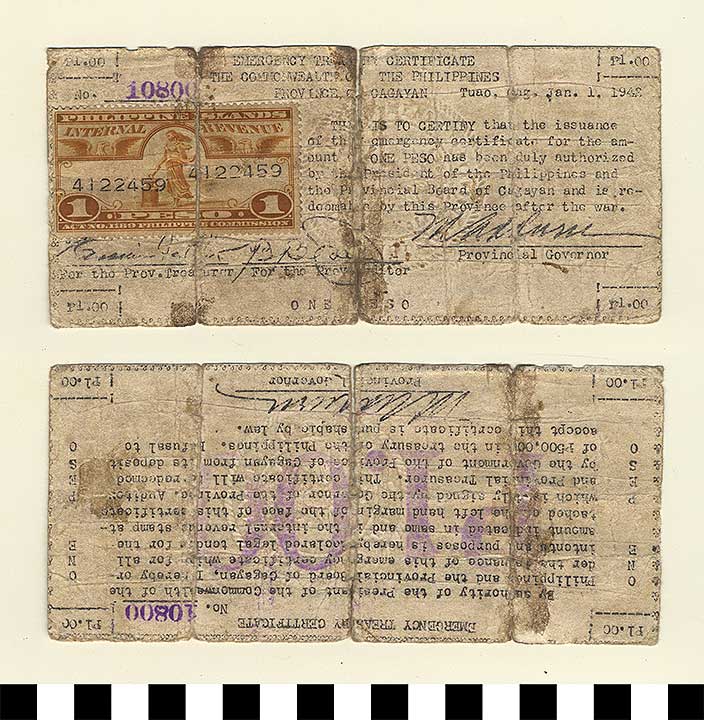 ₱1.00 EMERGENCY TREASURY CERTIFICATE ₱1.00
THE COMMONWEALTH OF THE PHILIPPINES
No. 10800 PROVINCE OF CAGAYAN Tuao, Cag. Jan. 1, 1942
PHILIPPINE ISLANDS
INTERNAL REVENUE
4122459 4122459
1 PESO 1
ACT NO. 1189 PHILIPPINE COMMISSION
THIS IS TO CERTIFY that the issuance
of this emergency certificate for the am-
ount of ONE PESO has been duly authorized
by the President of the Philippines and
the Provincial Board of Cagayan and is re-
deemable by this Province after the war.
Provincial Governor
For the Prov. Treasurer/ For the Prov. Auditor
₱1.00 ONE PESO ₱1.00
₱1.00 EMERGENCY TREASURY CERTIFICATE ₱1.00
No. 10800
By authority of the President of the Commonwealth of the
Philippines and the Provincial Board of Cagayan, I hereby or
der the issuance of this emergency certificate which for all
intents and purposes is hereby declared legal tender for the
amount indicated in same and in the internal revenue stamp at-
tached on the left hand margin of the face of this certificate
which is duly signed by the Governor of the Province, Auditor
and Provincial Treasurer. This certificate will be redeemed
by the Government of the Province of Cagayan from its deposit
of ₱500.00 in the treasury of the Philippines. Refusal to
accept this certificate is punishable by law.
Provincial Governor
ONE PESO
ONE PESO
₱1.00 ₱1.00